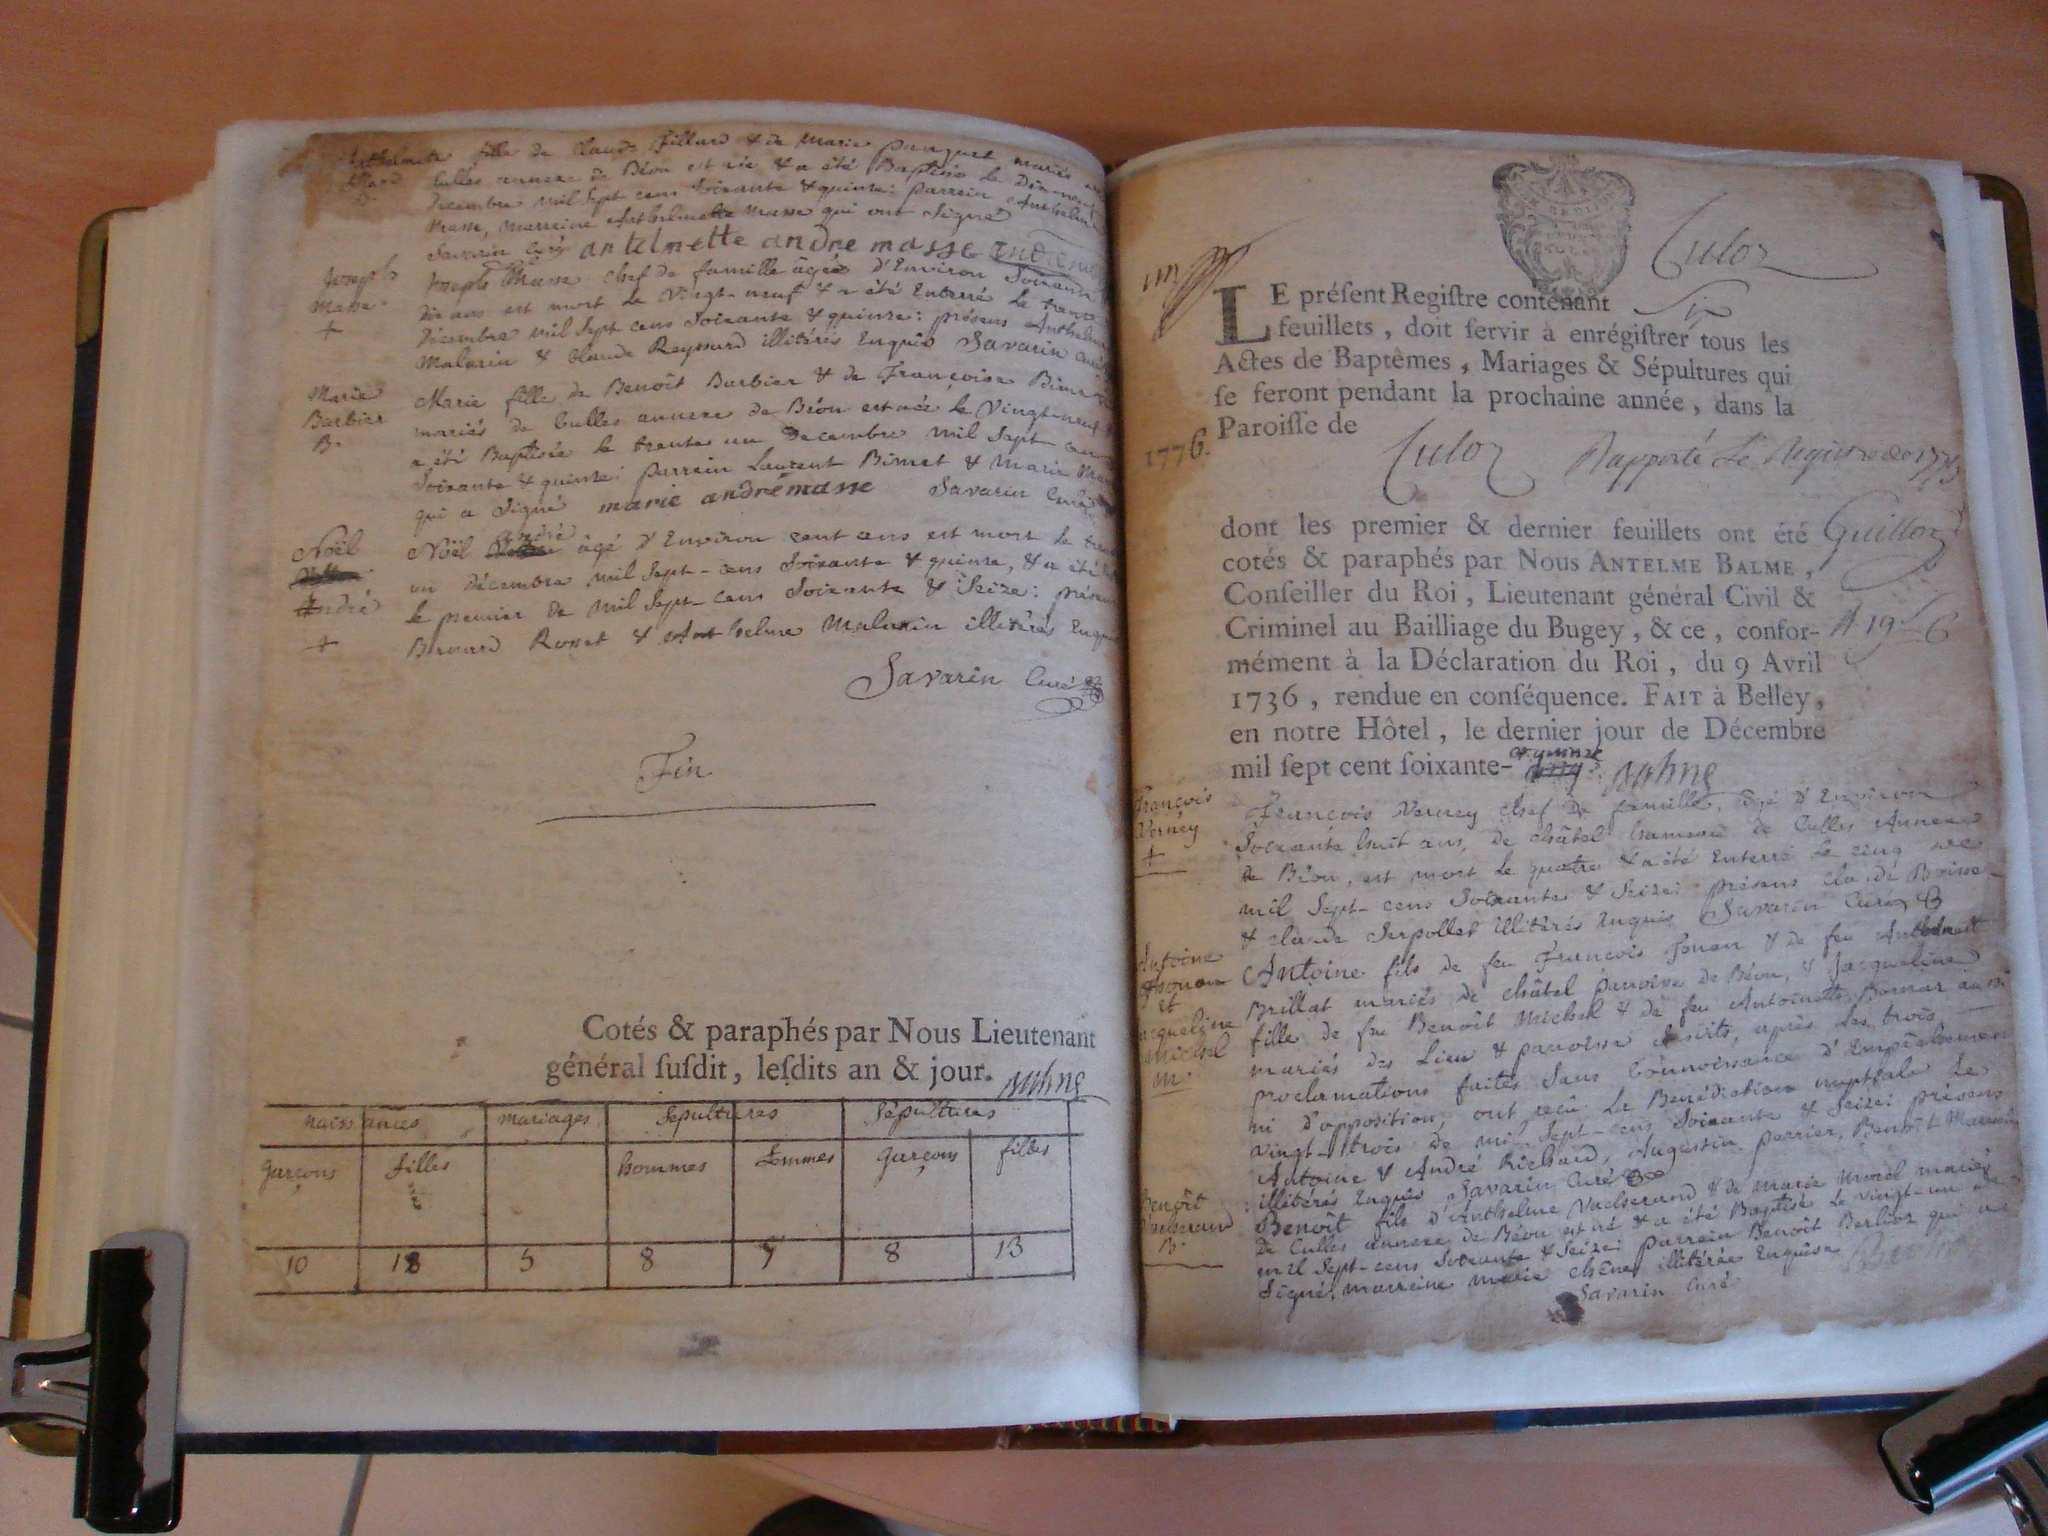 Anthelmette fille de Claude Fillard & de Marie Panguet mariés
Culles annexe de Béon est née & a été Baptisée le
Decembre mil sept cens soixante & quinze: parrein Anthelme
Masse, marreine Anthelmette Masse qui ont signé
Savarin Curé antelmette andre masse
Joseph
Masse
+
Joseph Masse chef de famille âgée d'Environ soixante
dix ans est mort le vingt-neuf & a été Enterré le trente
Décembre mil sept cens soixante & quinze: présens Anthelme
Malarin & Claude Reynard illitérés Enquis Savarin Curé
Marie
Barbier
B.
Marie fille de Benoît Barbier & de Françoise
mariés de Culles annexe de Béon est née le vingt-neuf
a été Baptisée le trente un Decembre mil sept cens
soixante & quinze: parrein Laurent Bimet & Marie
qui a signé marie andré masse Savarin Curé
Noël
André
+
Noël André âgé d'Environ cent ans est mort le trente
un Décembre mil sept-cens soixante & quinze, & a été
le premier de mil sept-cens soixante & seize: présens
Bernard Rosset & Anthelme Malarin illitérés Enquis
Savarin Curé
Fin
Cotés & paraphés par Nous Lieutenant
général susdit, lesdits an & jour.
naissances mariages sepultures sépultures
garçons filles hommes femmes garçons filles
10 18 5 8 7 8 13
Culoz
LE présent Registre contenant Six
feuillets, doit servir à enrégistrer tous les
Actes de Baptêmes, Mariages & Sépultures qui
se feront pendant la prochaine année, dans la
Paroisse de
1776.
Culoz Rapporté le Registre de 1775
dont les premier & dernier feuillets ont été
cotés & paraphés par Nous ANTELME BALME,
Conseiller du Roi, Lieutenant général Civil &
Criminel au Bailliage du Bugey, & ce, confor-
mément à la Déclaration du Roi, du 9 Avril
1736, rendue en conséquence. FAIT à Belley,
en notre Hôtel, le dernier jour de Décembre
mil sept cent soixante- et quinze
Guillon
François
Verney
+
François Verney chef de famille, âgé d'Environ
soixante huit ans, de châtel hameau de Culles Annexe
de Béon, est mort le quatre & a été Enterré le cinq de
mil sept-cens soixante & seize: présens claude Boisse
& claude Serpollet illitérés Enquis Savarin Curé
Antoine
et
Jacqueline
Michel
M.
Antoine fils de feu François & de feu Anthelmette
Brillat mariés de châtel paroisse de Béon, & Jacqueline
fille de feu Benoît Michel & de feu Antoinette Bornar aussi
mariés des Lieu & paroisse susdits, après les trois
proclamations faites sans connoissance d'Empêchement
ni d'opposition, ont reçu la Bénédiction nuptiale le
vingt-trois de mil sept-cens soixante & seize: présens
Antoine & André Richard, Augustin perrier, Benoît
illitérés Enquis Savarin Curé
Benoît
B.
Benoît fils d'Anthelme Vuelserand & de marie Morel mariés
de Culles annexe de Béon est né & a été Baptisé le vingt-un de
mil sept-cens soixante & seize: parrein Benoît Berlioz qui a
signé, marreine marie chêne illitérée Enquise
Savarin Curé